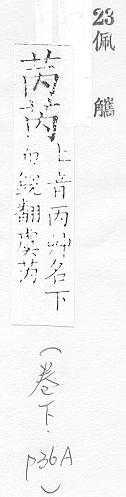 23 佩觿
苪芮
上音丙艸名下
而銳翻虞芮
(卷下. p36A)